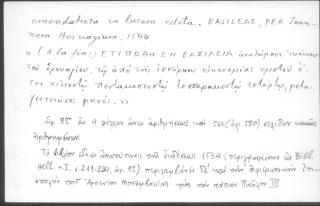 emendatiora in lucem edita. BASILEAE, PER Joan-
nem Hervagium, 1544.
» (A la fin:) ΕΤΥΠΩΘΗ ΕΝ ΒΑΣΙΛΕΙΑ ἀναλώμασι ἰωάννου
τοῦ ἑρουαγίου, τῷ ἀπὸ τῆς ἐνσάρκου οἰκονομίας χριστοῦ ἔ-
τει χιλιοστῷ πεντακοσιοστῷ τεσσαρακοστῷ τετάρτῳ, μετα-
γειτνιῶνος μηνός. »
Σχ. 8ον ἐκ 4 φύλλων ἄνευ ἀριθμήσεως καὶ 586 (ὄχι 580) σελίδων καλῶς
ἠριθμημένων.
Τὸ βιβλίον εἶναι ἀνατύπωσις τῆς ἐκδόσεως 1534 (περιγραφείσης ἐν Bibl.
Hell. τ. I, σ. 219-224, ἀρ. 92) περιλαμβάνει δὲ καὶ τὴν ἀφιερωτικὴν ἐπι-
στολὴν τοῦ Ἀρσενίου Μονεμβασίας πρὸς τὸν πάπαν Παῦλον III.